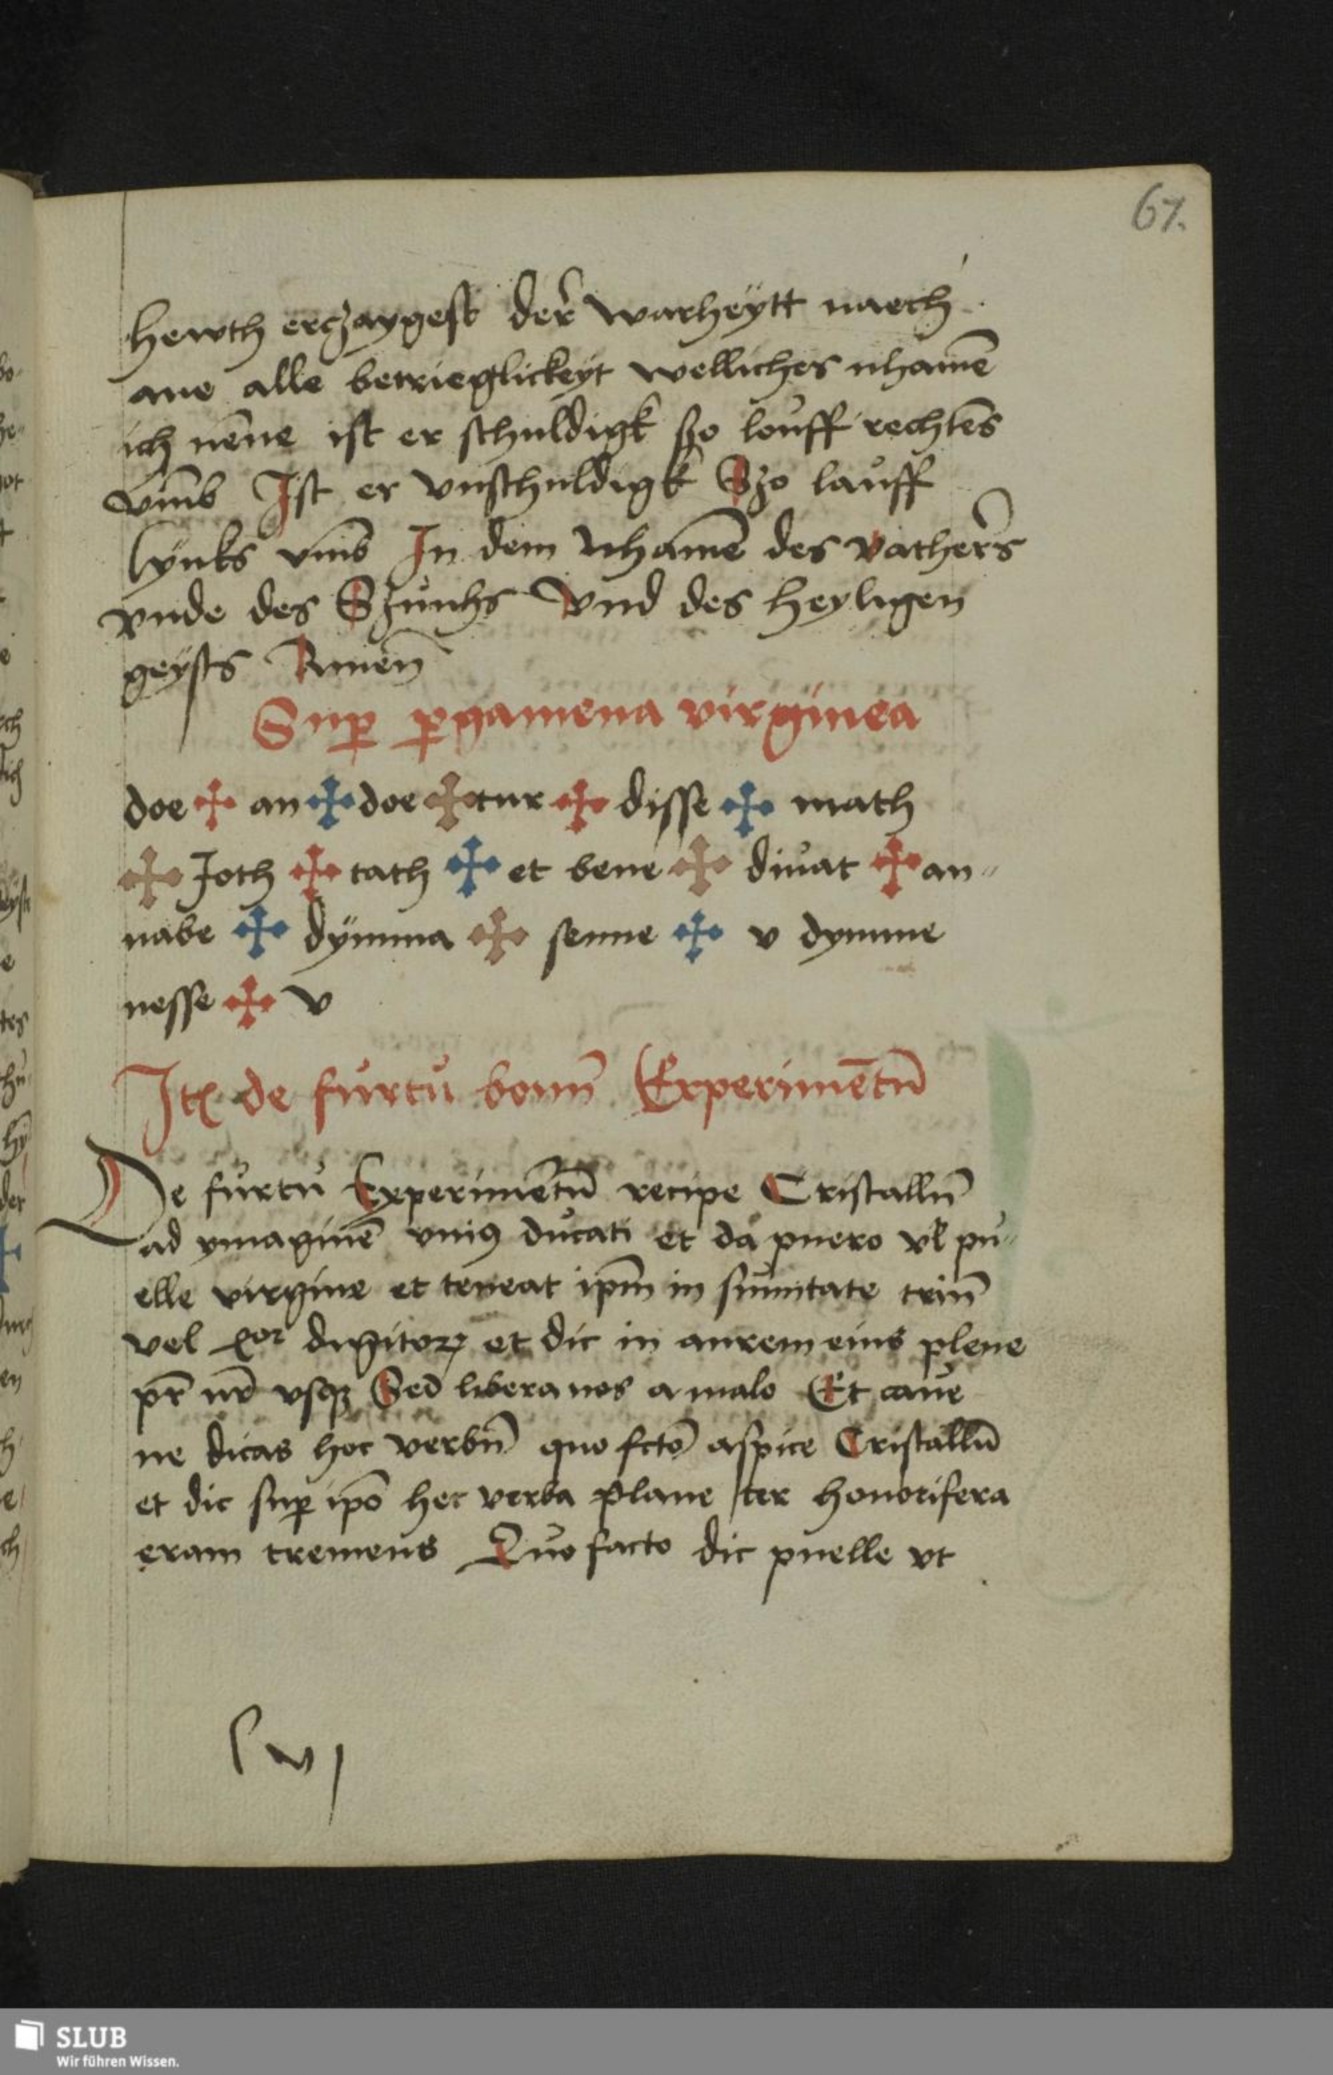 67.
hewth erczaygest der̄ warheÿtt naech
ane alle betrieglickeyt wellicher nhamē
ich nēne ist er schuldigk szo louff rechtes
vm̄b Ist er vnschuldigk Szo lauff
lÿnks vm̄b In dem Nhamē des vather̄s
vnde des Szunhs Vnd des heyligen
geÿsts Amen̄
Suꝑ ꝑgamena virginea
doe ✠ an ✠ doe ✠ tur ✠ disse ✠ math
✠ Joth ✠ tath ✠ et bene ✠ diuat ✠ an-
nabe ✠ dÿmma ✠ senne ✠ v dymme
nesse ✠ v
Itē de furtu bonū Experimētū
De furtu Experimētū recipe Cristallū
ad ymaginē vniꝰ ducati et da puero vl pu-
elle virgine et teneat ipm̄ in sum̄itate triū
vel digitoꝝ et dic in aurem eius plene
pr̄ nr̄ vsqꝫ Sed libera nos a malo Et caue
ne dicas hoc verbū quo fctō aspice Cristallū
et dic suꝑ ipō hec verba plane ter honorifera
eram tremens Quo facto dic puelle vt
lvj
SLUB
Wir führen Wissen.